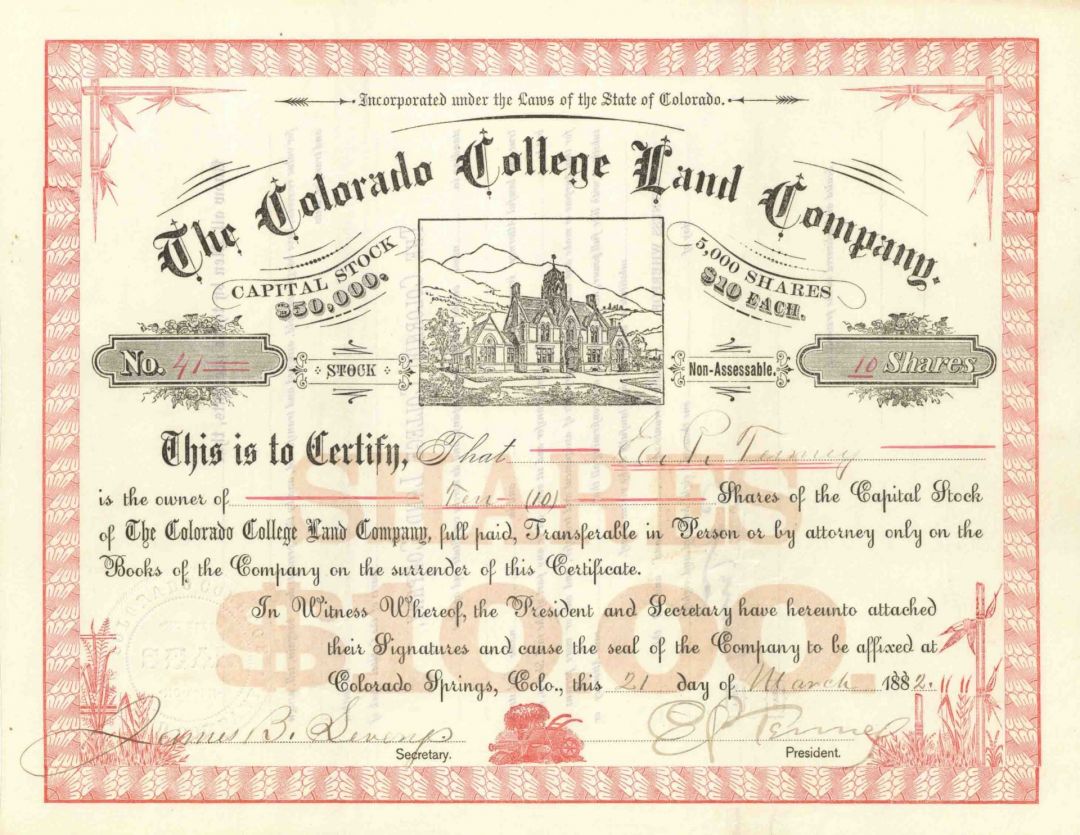 Incorporated under the Laws of the State of Colorado.
The Colorado College Land Company.
CAPITAL STOCK
$50,000.
5,000 SHARES
$10 EACH.
No. 41
STOCK
Non-Assessable.
10 Shares
This is to Certify, That E. P. Tenney
is the owner of Ten (10) Shares of the Capital Stock
of The Colorado College Land Company, full paid, Transferable in Person or by attorney only on the
Books of the Company on the surrender of this Certificate.
SHARES
$10.00.
In Witness Whereof, the President and Secretary have hereunto attached
their Signatures and cause the seal of the Company to be affixed at
Colorado Springs, Colo., this 21 day of March 1882.
B.
Secretary.
E P Tenney
President.